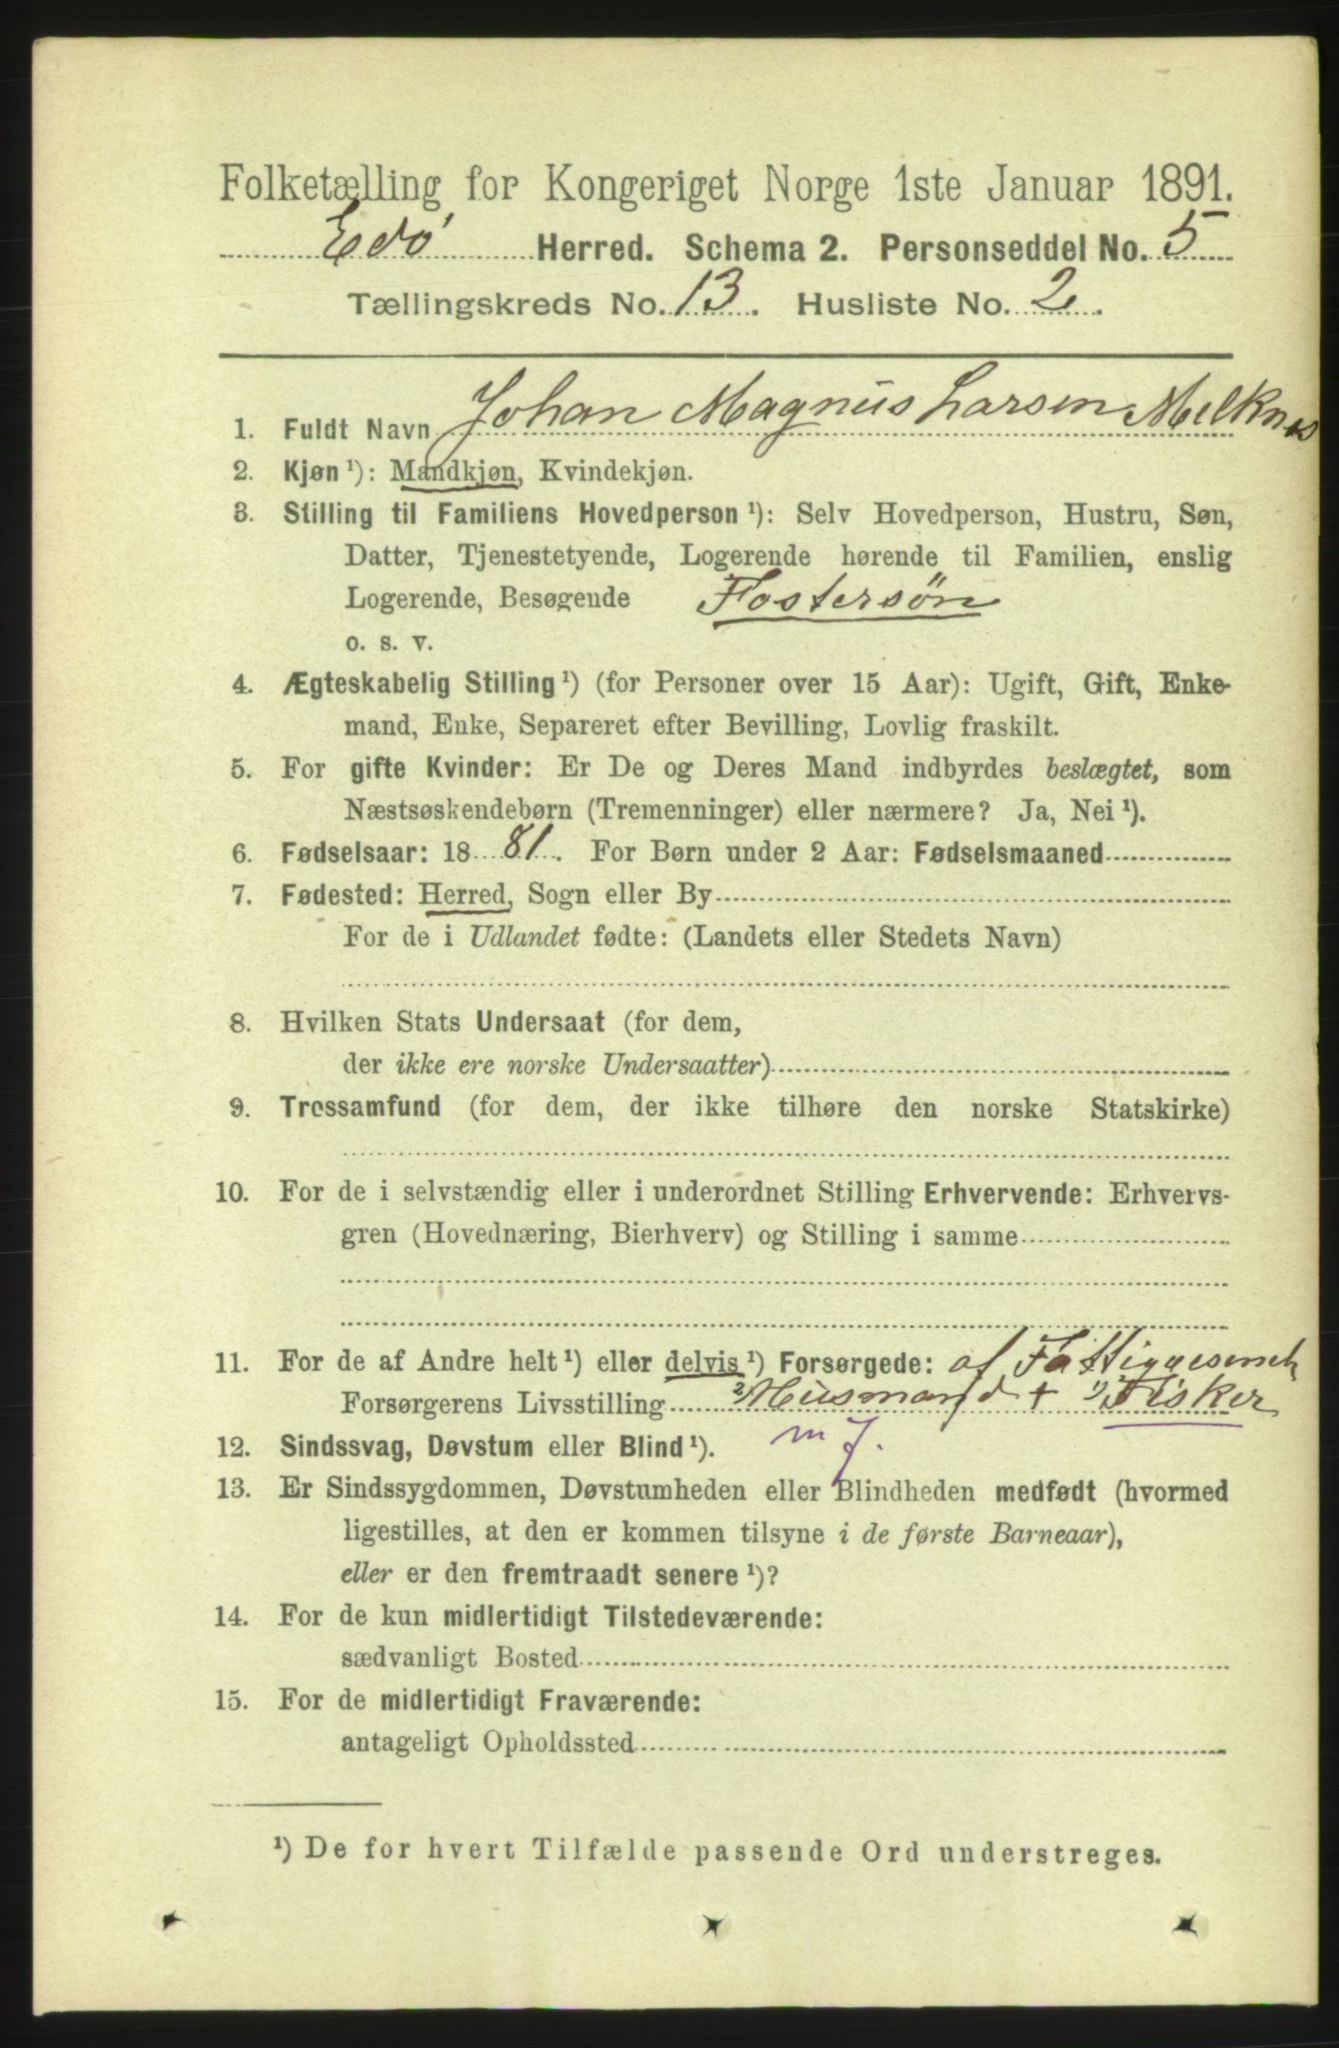 Folketælling for Kongeriget Norge 1ste Januar 1891.
Edö Herred. Schema 2. Personseddel No. 5
Tællingskreds No. 13. Husliste No. 2.
1. Fuldt Navn Johan Magnus Larsen Melknes
2. Kjøn ¹): Mandkjøn, Kvindekjøn.
3. Stilling til Familiens Hovedperson ¹): Selv Hovedperson, Hustru, Søn,
Datter, Tjenestetyende, Logerende hørende til Familien, enslig
Logerende, Besøgende Fostersön
o. s. v.
4. Ægteskabelig Stilling ¹) (for Personer over 15 Aar): Ugift, Gift, Enke-
mand, Enke, Separeret efter Bevilling, Lovlig fraskilt.
5. For gifte Kvinder: Er De og Deres Mand indbyrdes beslægtet, som
Næstsøskendebørn (Tremenninger) eller nærmere? Ja, Nei ¹).
6. Fødselsaar: 18 81. For Børn under 2 Aar: Fødselsmaaned
7. Fødested: Herred, Sogn eller By
For de i Udlandet fødte: (Landets eller Stedets Navn)
8. Hvilken Stats Undersaat (for dem,
der ikke ere norske Undersaatter)
9. Trossamfund (for dem, der ikke tilhøre den norske Statskirke)
10. For de i selvstændig eller i underordnet Stilling Erhvervende: Erhvervs-
gren (Hovednæring, Bierhverv) og Stilling i samme
11. For de af Andre helt ¹) eller delvis ¹) Forsørgede: af
Forsørgerens Livsstilling 2) Husmand + 1) Fisker
12. Sindssvag, Døvstum eller Blind ¹). m J.
13. Er Sindssygdommen, Døvstumheden eller Blindheden medfødt (hvormed
ligestilles, at den er kommen tilsyne i de første Barneaar),
eller er den fremtraadt senere ¹)?
14. For de kun midlertidigt Tilstedeværende:
sædvanligt Bosted
15. For de midlertidigt Fraværende:
antageligt Opholdssted
¹) De for hvert Tilfælde passende Ord understreges.